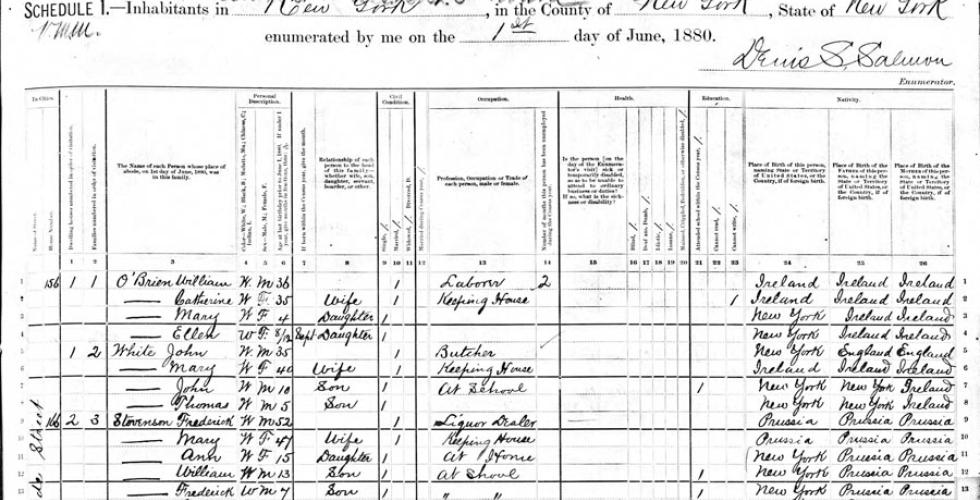 SCHEDULE 1.—Inhabitants in New York, in the County of New York, State of New York
enumerated by me on the 1st day of June, 1880.
Denis S. Salmon
Enumerator.
In Cities. Personal Description. Civil Condition. Occupation. Health. Education. Nativity.
Name of Street. House Number. Dwelling houses numbered in order of visitation. Families numbered in order of visitation. The Name of each Person whose place of abode, on 1st day of June, 1880, was in this family. Relationship of each person to the head of this family—whether wife, son, daughter, servant, boarder, or other. Single, / Married, / Widowed, / Divorced, D. Married during Census year, / Profession, Occupation or Trade of each person, male or female. Number of months this person has been unemployed during the Census year. Is the person [on the day of the Enumerator's visit] sick or temporarily disabled, so as to be unable to attend to ordinary business or duties? If so, what is the sickness or disability? Blind, / Deaf and Dumb, / Idiotic, / Insane, / Maimed, Crippled, Bedridden, or otherwise disabled, / Attended school within the Census year, / Cannot read, / Cannot write, / Place of Birth of this person, naming State or Territory of United States, or the Country, if of foreign birth. Place of Birth of the FATHER of this person, naming the State or Territory of United States, or the Country, if of foreign birth. Place of Birth of the MOTHER of this person, naming the State or Territory of United States, or the Country, if of foreign birth.
1 2 3 4 5 6 7 8 9 10 11 12 13 14 15 16 17 18 19 20 21 22 23 24 25 26
1 156 1 1 O'Brien William W M 36 / Laborer 2 Ireland Ireland Ireland 1
2 — Catherine W F 35 Wife / Keeping House / Ireland Ireland Ireland 2
3 — Mary W F 4 Daughter / New York Ireland Ireland 3
4 — Ellen W F 8/12 Sept Daughter / New York Ireland Ireland 4
5 1 2 White John W M 35 / Butcher New York England England 5
6 — Mary W F 40 Wife / Keeping House Ireland Ireland Ireland 6
7 — John W M 10 Son / At School / New York New York Ireland 7
8 — Thomas W M 5 Son / New York New York Ireland 8
9 166 2 3 Stevenson Frederick W M 52 / Liquor Dealer Prussia Prussia Prussia 9
10 — Mary W F 47 Wife / Keeping House Prussia Prussia Prussia 10
11 — Ann W F 15 Daughter / At Home New York Prussia Prussia 11
12 — William W M 13 Son / At School / New York Prussia Prussia 12
13 — Frederick W M 7 Son / " " / New York Prussia Prussia 13
Street